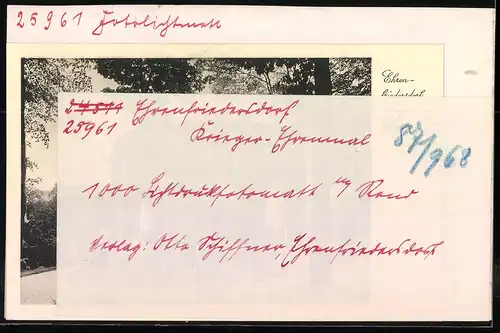 25961 Fotolichtmatt
Ehren-
friedersdorf
24514 Ehrenfriedersdorf
25961
Krieger-Ehrenmal
87/968
1000 Lichtdruckfotomatt m/ Rand
Verlag: Otto Schiffner, Ehrenfriedersdorf